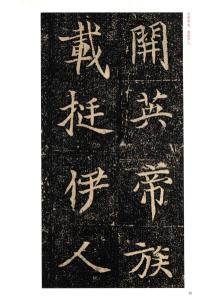 開英帝族
載挺伊人